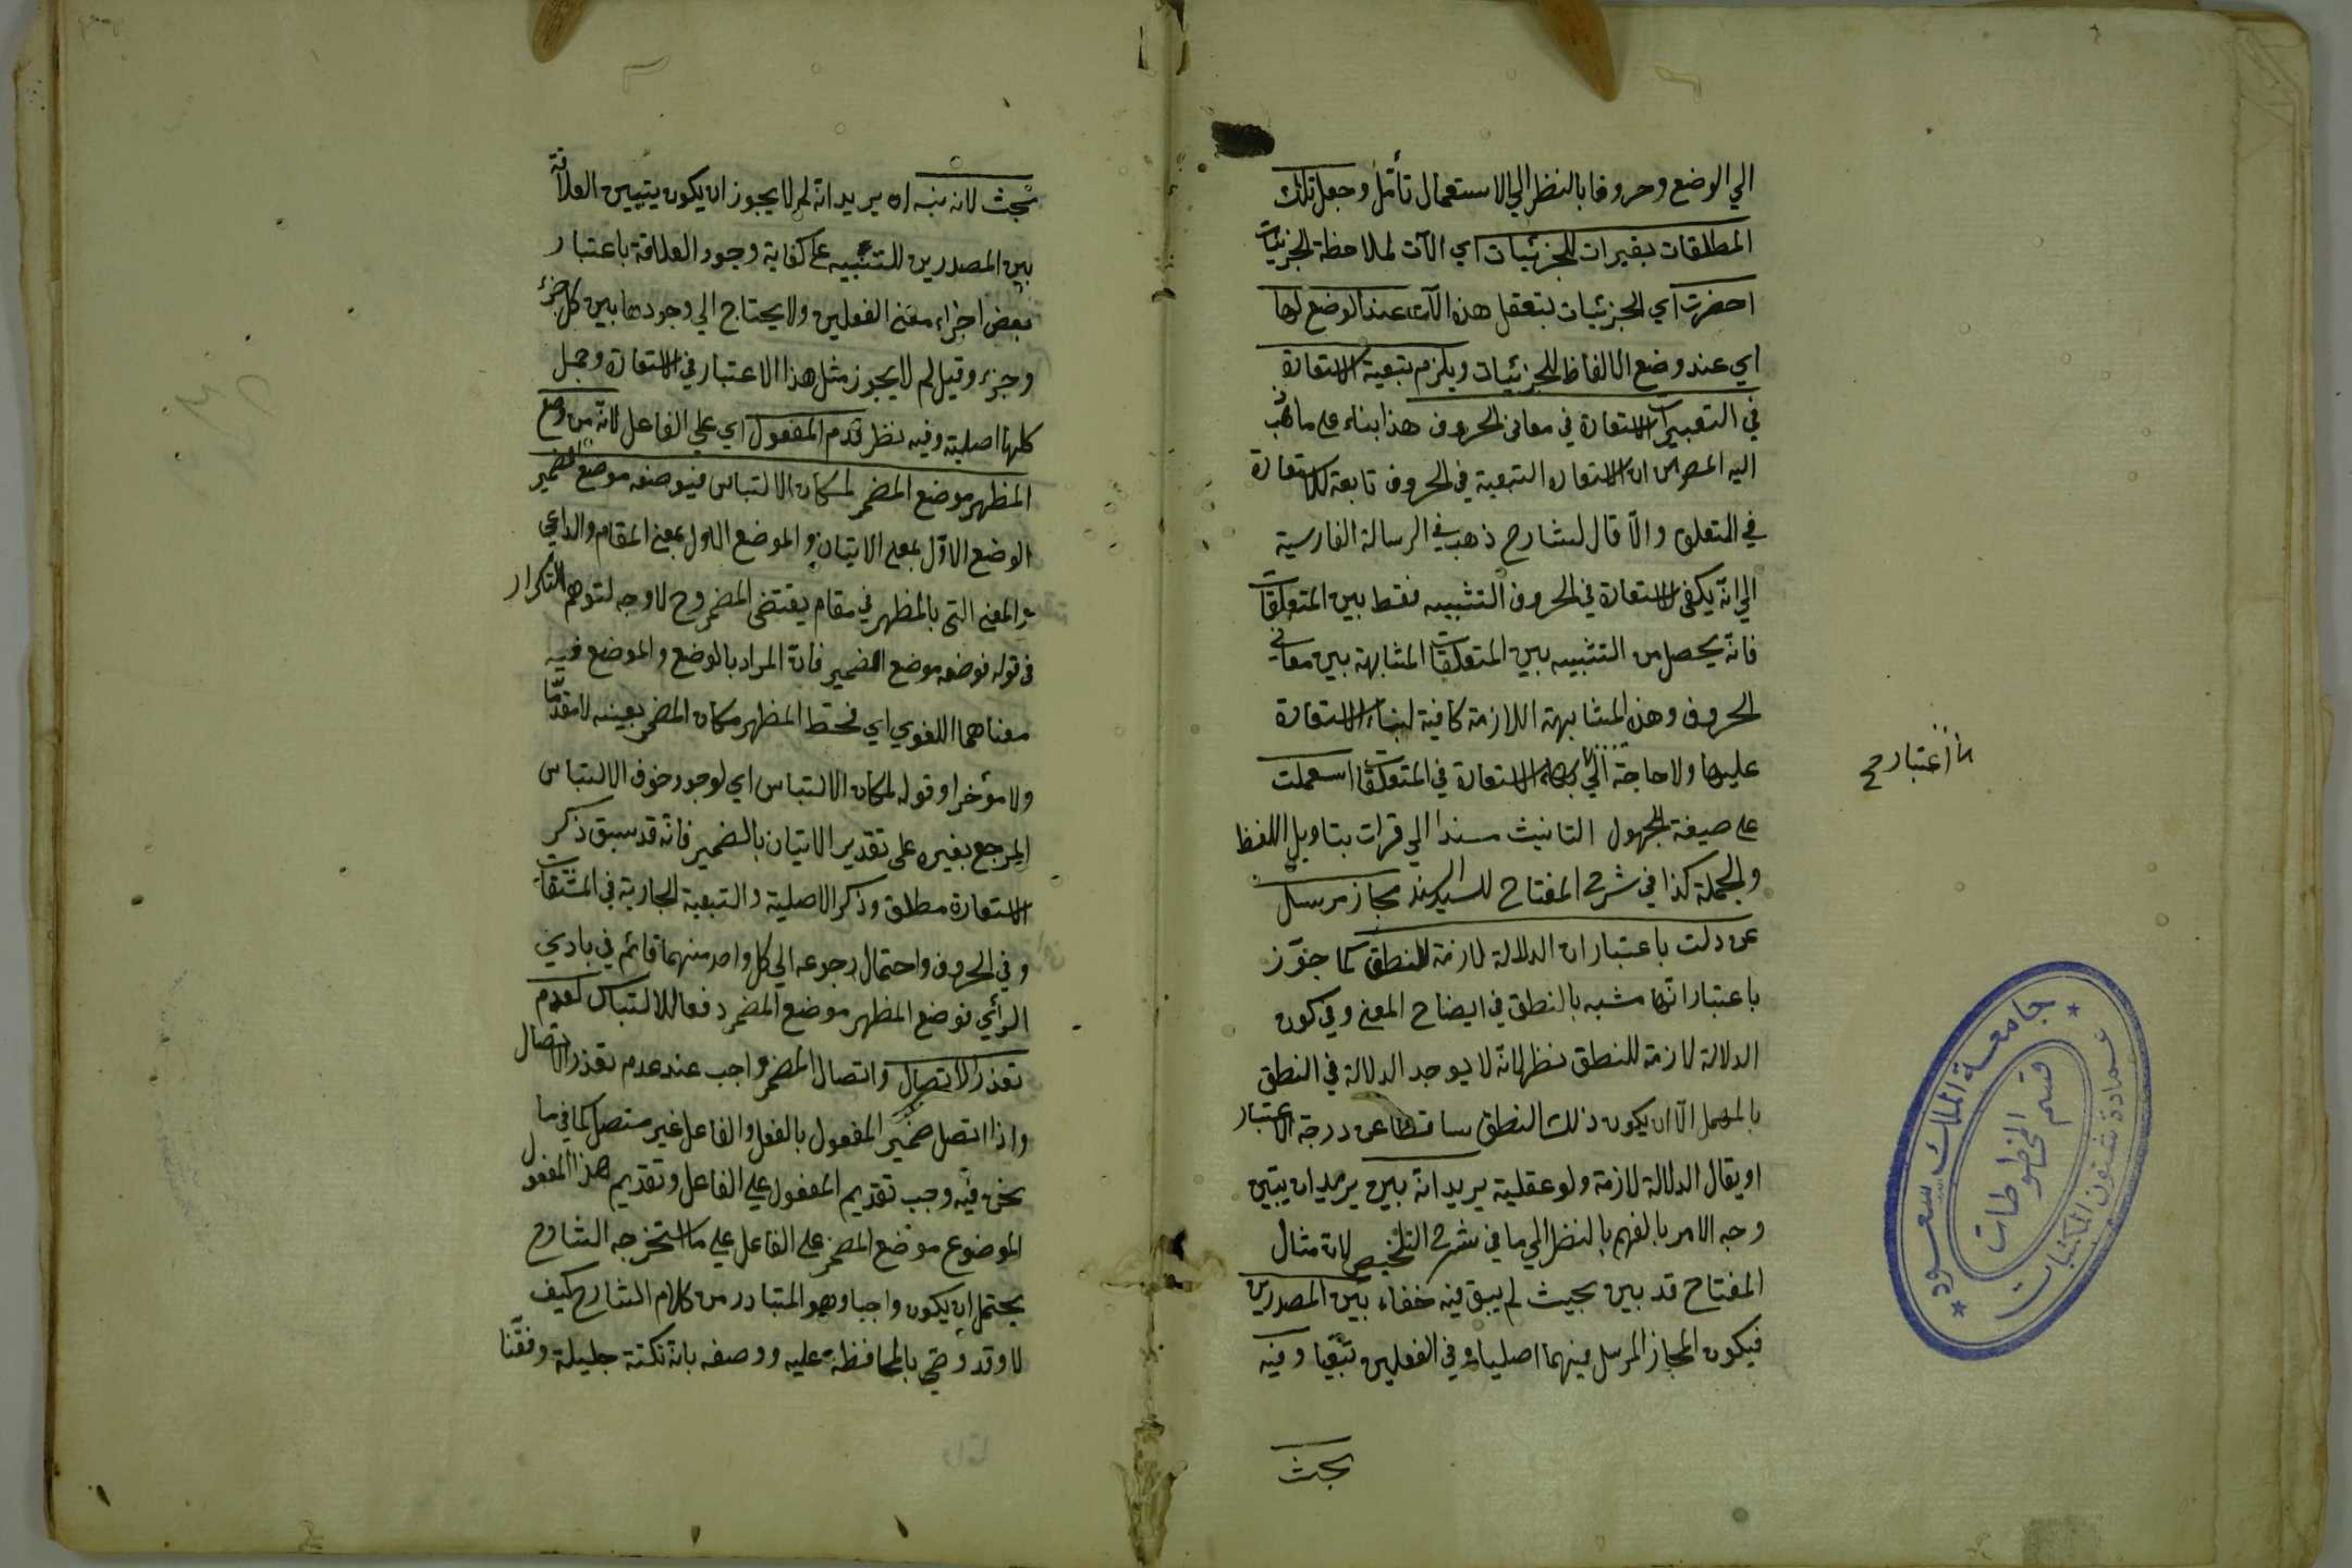 الي الوضع وحروفا بالنظر الي الاستعمال تأمل وجعل تلك
المطلقات بقيرات للجزئيات اي الآت لملاحظة الجزئيات
احضرت اي الجزئيات بتعقل هذه الآت عند الوضع لها
اي عند وضع الالفاظ للجزئيات ويلزم بتبعية الاستعارة
في التعبيرات الاستعارة في معاني الحروف هذا بناء على ما ذهب
اليه المص من ان الاستعارة التبعية في الحروف تابعة للاستعارة
في المتعلق والا قال الشارح ذهب في الرسالة الفارسية
الي انه يكفي الاستعارة في الحروف التشبيه فقط بين المتعلقات
فانه يحصل من التشبيه بين المتعلقات المشابهة بين معاني
الحروف وهذه المشابهة اللازمة كافية لبناء الاستعارة
عليها ولا حاجة الي الاستعارة في المتعلقات استعملت
على صيغة المجهول التانيث مسندا الي قرات بتاويل اللفظ
والجملة كذا في شرح المفتاح للسيد السند مجاز مرسل
عن دلت باعتبار ان الدلالة لازمة للنطق كما جوّز
باعتبار انها مشبه بالنطق في ايضاح المعنى وفي كون
الدلالة لازمة للنطق نظر لانه لا يوجد الدلالة في النطق
بالمهمل الّا ان يكون ذلك النطق ساقطا عن درجة الاعتبار
او يقال الدلالة لازمة ولو عقلية يريد انه بين يريد ان يتبين
وجه الامر بالفهم بالنظر الي ما في شرح التلخيص لان مثال
المفتاح قد بين بحيث لم يبق فيه خفاء بين المصدرين
فيكون المجاز المرسل فيهما اصليا وفي الفعلين تبعيا وفيه
بحث
اعتبار صح
جامعة الملك سعود
عمادة شئون المكتبات
قسم المخطوطات
بحث لانه نبه اه يريد انه لم لا يجوز ان يكون يتبيين العلاقة
بين المصدرين للتنبيه على كفاية وجود العلاقة باعتبار
بعض اجزاء معنى الفعلين ولا يحتاج الي وجودها بين كل جزء
وجزء وقيل لم لا يجوز مثل هذا الاعتبار في الاستعارة وجعل
كلها اصلية وفيه نظر قدم المفعول اي علي الفاعل لانه من وضع
المظهر موضع المضمر لمكان الالتباس فيوضعه موضع الضمير
الوضع الاول بمعنى الاتيان والموضع الاول بمعنى المقام والداعي
والمعنى التي بالمظهر في مقام يقتضي المضمر وح لا وجه لتوهم التكرار
في قوله فوضعه موضع الضمير فان المراد بالوضع والموضع فيه
معناهما اللغوي اي فحط المظهر مكان المضمر بعينه لا مقدّما
ولا مؤخرا وقوله لمكان الالتباس اي لوجود خوف الالتباس
المرجع بغيره على تقدير الاتيان بالضمير فانه قد سبق ذكر
الاستعارة مطلق وذكر الاصلية والتبعية الجارية في المشتقات
وفي الحروف واحتمال رجوعه الي كل واحد منهما قائم في بادي
الرأي فوضع المظهر موضع المضمر دفعا للالتباس لعدم
تعذر الاتصال واتصال المضمر واجب عند عدم تعذر الاتصال
واذا اتصل ضمير المفعول بالفعل والفاعل غير متصل كما في ما
نحن فيه وجب تقديم المفعول علي الفاعل وتقديم هذا المفعول
الموضوع موضع المضمر على الفاعل على ما استخرجه الشارح
يحتمل ان يكون واجبا وهو المتبادر من كلام الشارح كيف
لا وقد وضي بالمحافظة عليه ووصفه بانه نكتة جليلة وفقنا